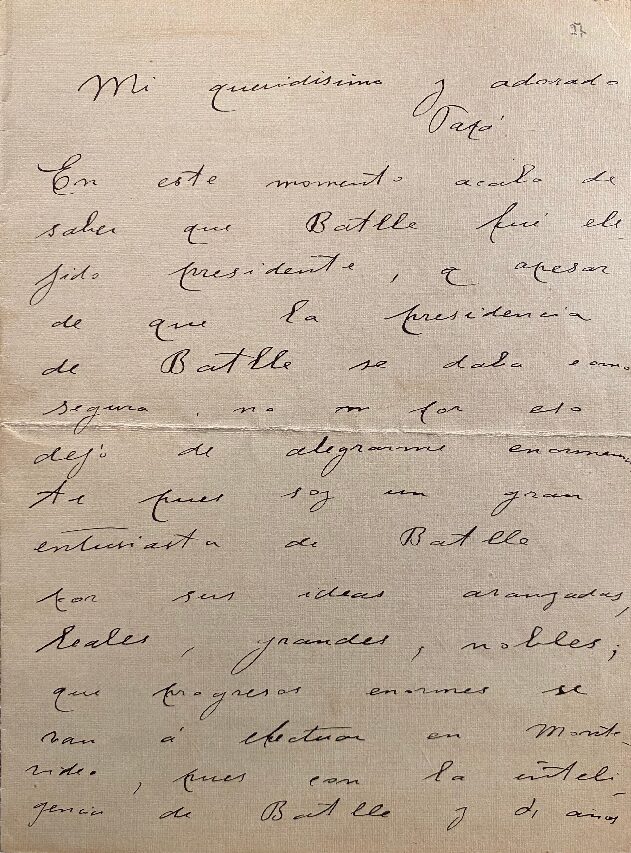 27
Mi queridisimo y adorado
Papá
En este momento acabo de
saber que Batlle fué ele
jido presidente, y apesar
de que la presidencia
de Batlle se daba como
segura, no por eso
dejo de alegrarme enormemen
te pues soy un gran
entusiasta de Batlle
por sus ideas avanzadas,
leales, grandes, nobles;
que progresos enormes se
van á efectuar en Monte-
video, pues con la inteli
gencia de Batlle y